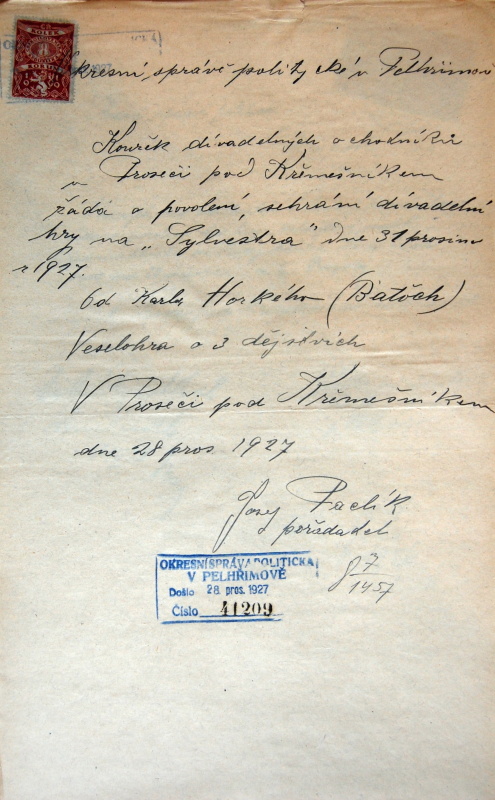 KOLEK
Okresní správě politické v Pelhřimově
Kroužek divadelných ochodníků
v Proseči pod Křemešníkem
žádá o povolení, sehrání divadelní
hry na „Sylvestra" dne 31 prosince
r 1927.
Od Karla Horkého (Batoch)
Veselohra o 3 dějstvích
V Proseči pod Křemešníkem
dne 28 pros 1927
Josef Paclík
pořádadel
OKRESNÍ SPRÁVA POLITICKÁ
V PELHŘIMOVĚ
Došlo 28. pros. 1927
Číslo 41209
7
1457